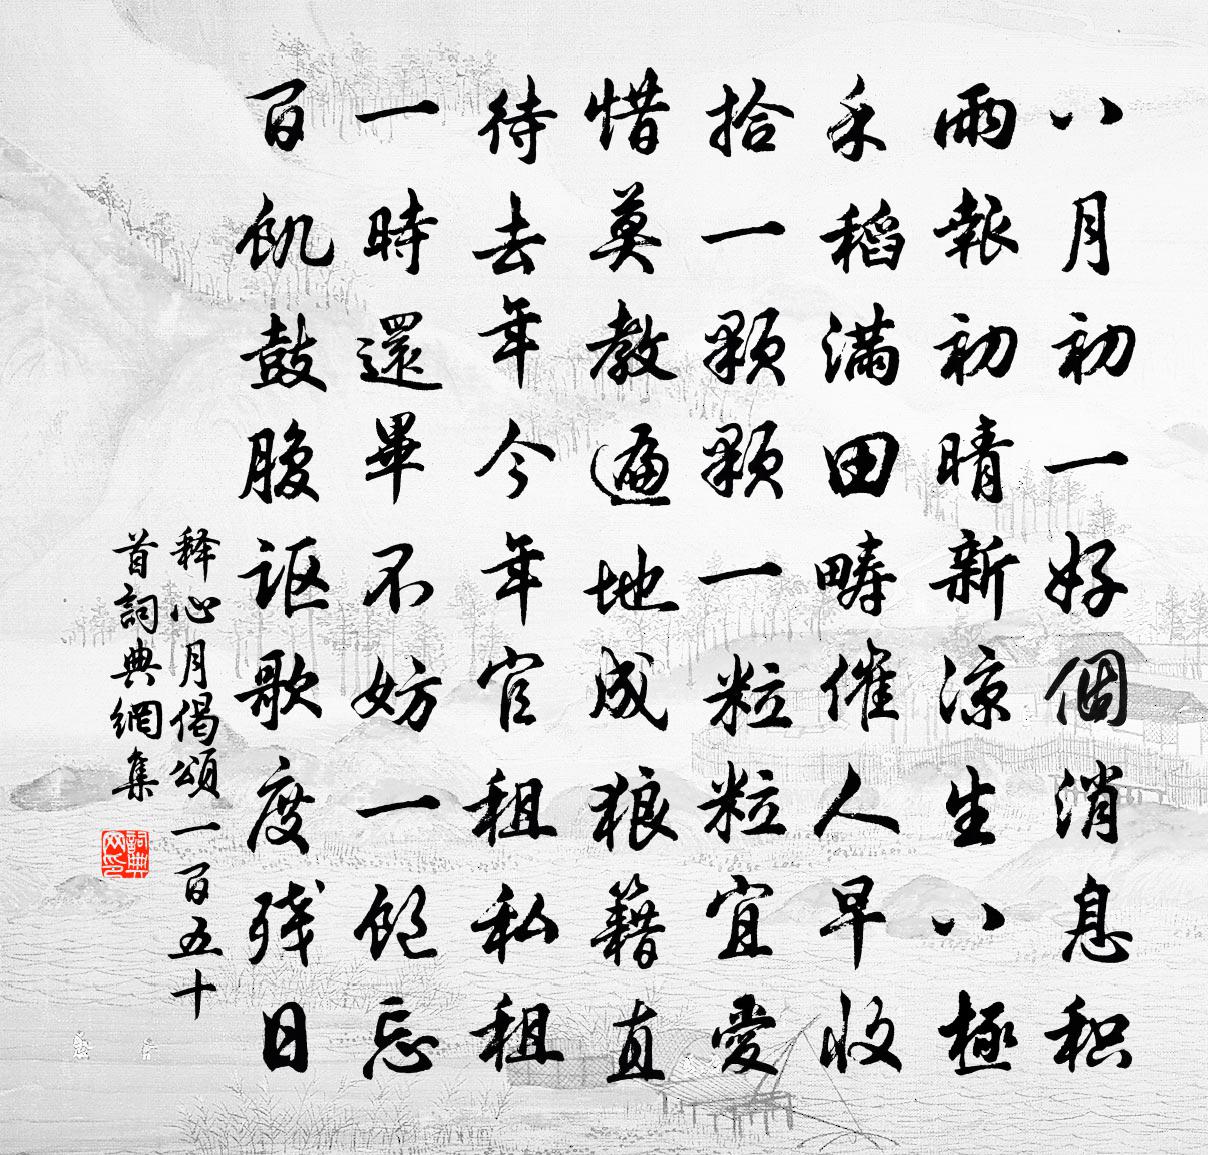 八月初一好個消息积
雨報初晴新涼生八極
禾稻滿田疇催人早收
拾一顆顆一粒粒宜愛
惜莫教遍地成狼籍直
待去年今年官租私租
一時還畢不妨一飽忘
百飢鼓腹讴歌度殘日
释心月偈頌一百五十
首詞典網集
詞典网印